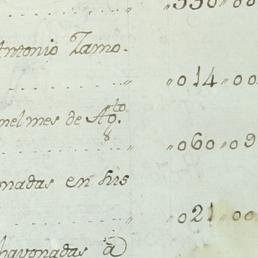 "550"00
Antonio Zamo-
"014"00
nel mes de Ag.to
8
"060"09
nadas en sus
"021"00
havonadas à